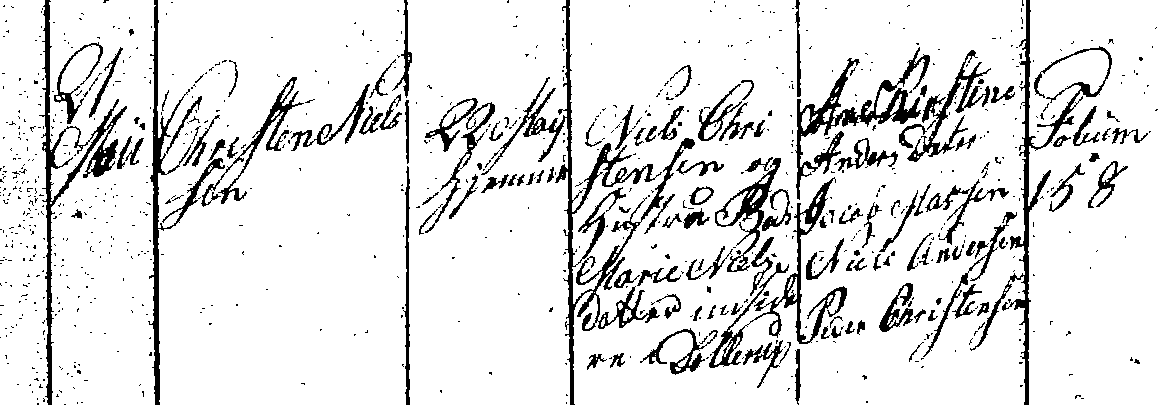 21
Maii
Christen Niels
sön
22 Maij
hjemme
Niels Chri
stensen og
Hustru
Marie Niels
datter indsid
re i Sollerup
Ane Kirstine
Anders Dater
Jacob Massen
Niels Andersen
Peder Christensen
Folium
158